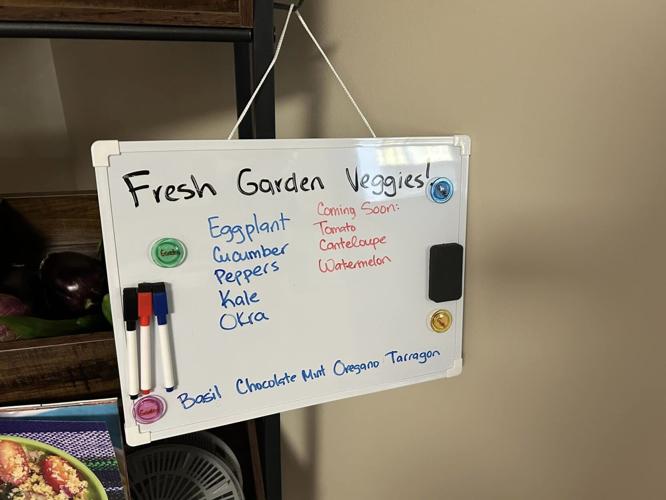 Fresh Garden Veggies!
Eggplant
Cucumber
Peppers
Kale
Okra
Coming Soon:
Tomato
Canteloupe
Watermelon
Basil Chocolate Mint Oregano Tarragon